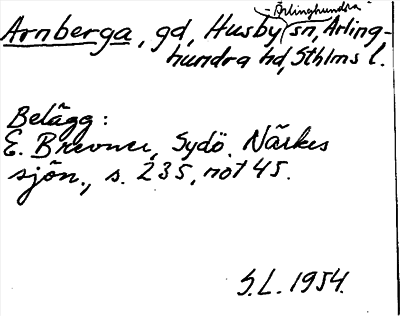 -Ärlinghundra-
Arnberga, gd, Husby sn, Ärling-
hundra hd, Sthlms l.
Belägg:
E. Brevner, Sydö. Närkes
sjön., s. 235, not 45.
S.L. 1954.